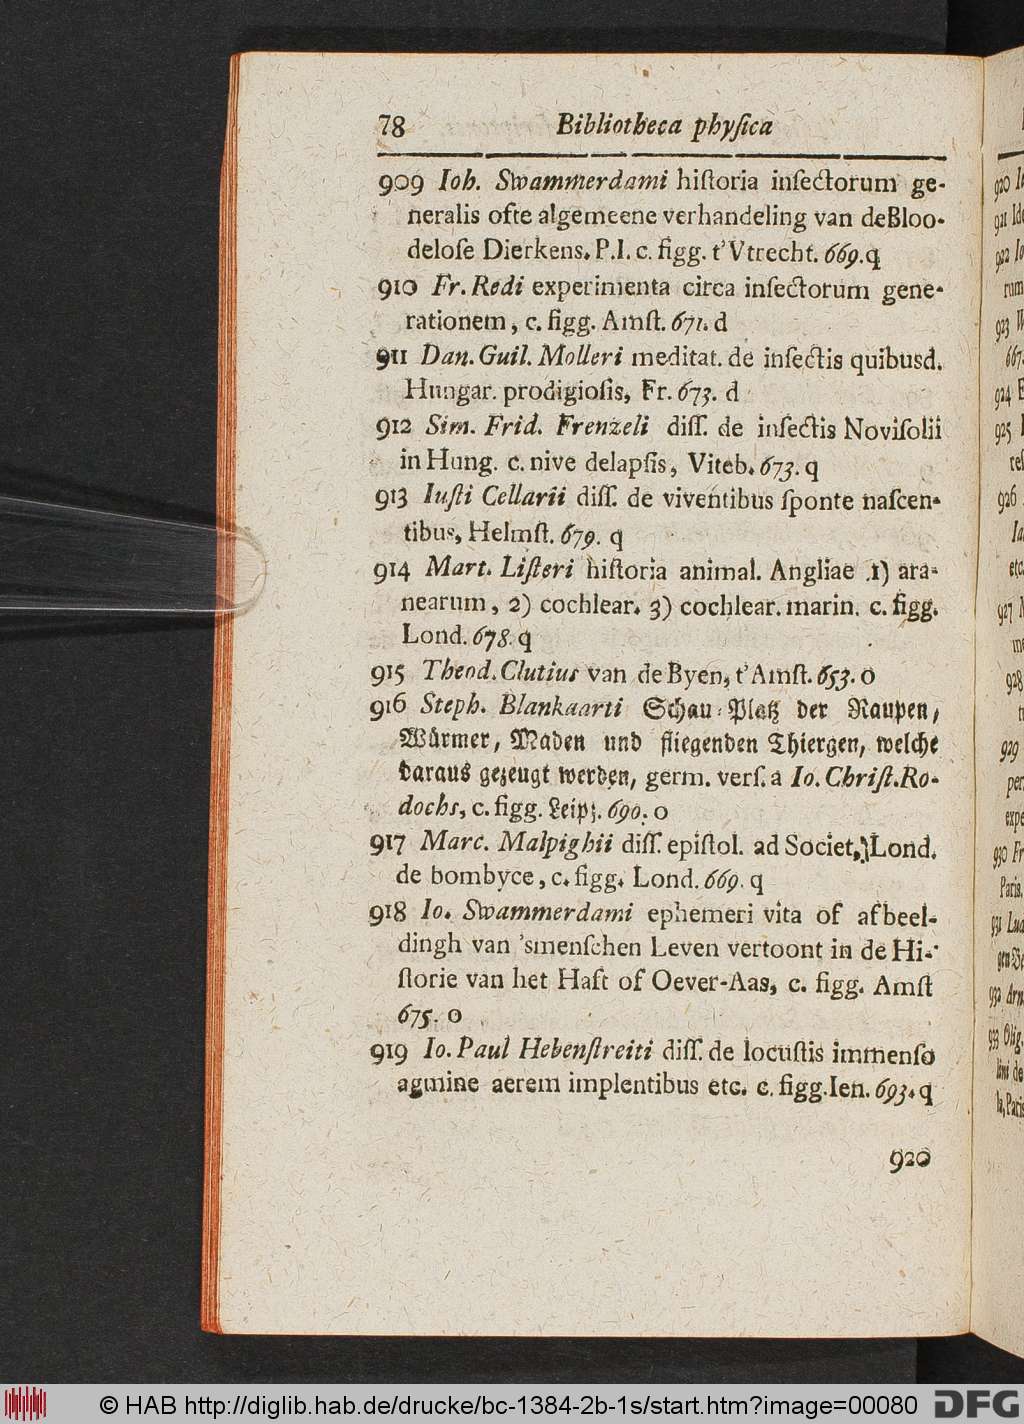 78 Bibliotheca physica
909 Ioh. Swammerdami historia insectorum ge-
neralis ofte algemeene verhandeling van de Bloo-
delose Dierkens. P.I. c. figg. t'Vtrecht. 669. q
910 Fr. Redi experimenta circa insectorum gene-
rationem, c. figg. Amst. 671. d
911 Dan. Guil. Molleri meditat. de insectis quibusd.
Hungar. prodigiosis, Fr. 673. d
912 Sim. Frid. Frenzeli diss. de insectis Novisolii
in Hung. c. nive delapsis, Viteb. 673. q
913 Iusti Cellarii diss. de viventibus sponte nascen-
tibus, Helmst. 679. q
914 Mart. Listeri historia animal. Angliae 1) ara-
nearum, 2) cochlear. 3) cochlear. marin. c. figg.
Lond. 678. q
915 Theod. Clutius van de Byen, t'Amst. 653. o
916 Steph. Blankaarti Schau-Platz der Raupen,
Würmer, Maden und fliegenden Thiergen, welche
daraus gezeugt werden, germ. vers. a Io. Christ. Ro-
dochs, c. figg. Leipz. 690. o
917 Marc. Malpighii diss. epistol. ad Societ. Lond.
de bombyce, c. figg. Lond. 669. q
918 Io. Swammerdami ephemeri vita of afbeel-
dingh van 'smenschen Leven vertoont in de Hi-
storie van het Haft of Oever-Aas, c. figg. Amst
675. o
919 Io. Paul Hebenstreiti diss. de locustis immenso
agmine aerem implentibus etc. c. figg. Ien. 693. q
920
© HAB http://diglib.hab.de/drucke/bc-1384-2b-1s/start.htm?image=00080
DFG